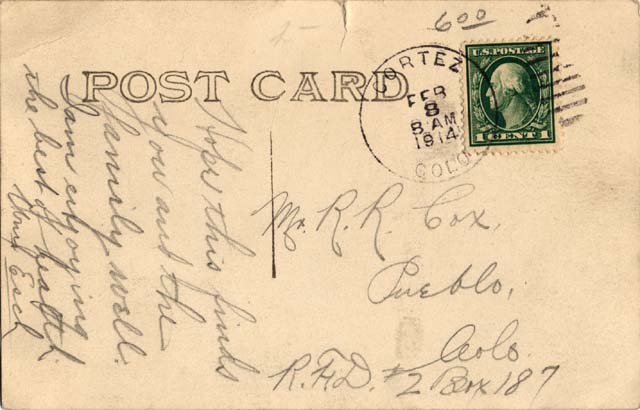 600
POST CARD
CORTEZ
FEB
8
8 AM
1914
COLO
U.S. POSTAGE
1 CENT 1
Hope this finds
you and the
family well.
I am enjoying
the best of health.
Mr. R. R. Cox,
Pueblo,
Colo.
R.F.D. #2 Box 187